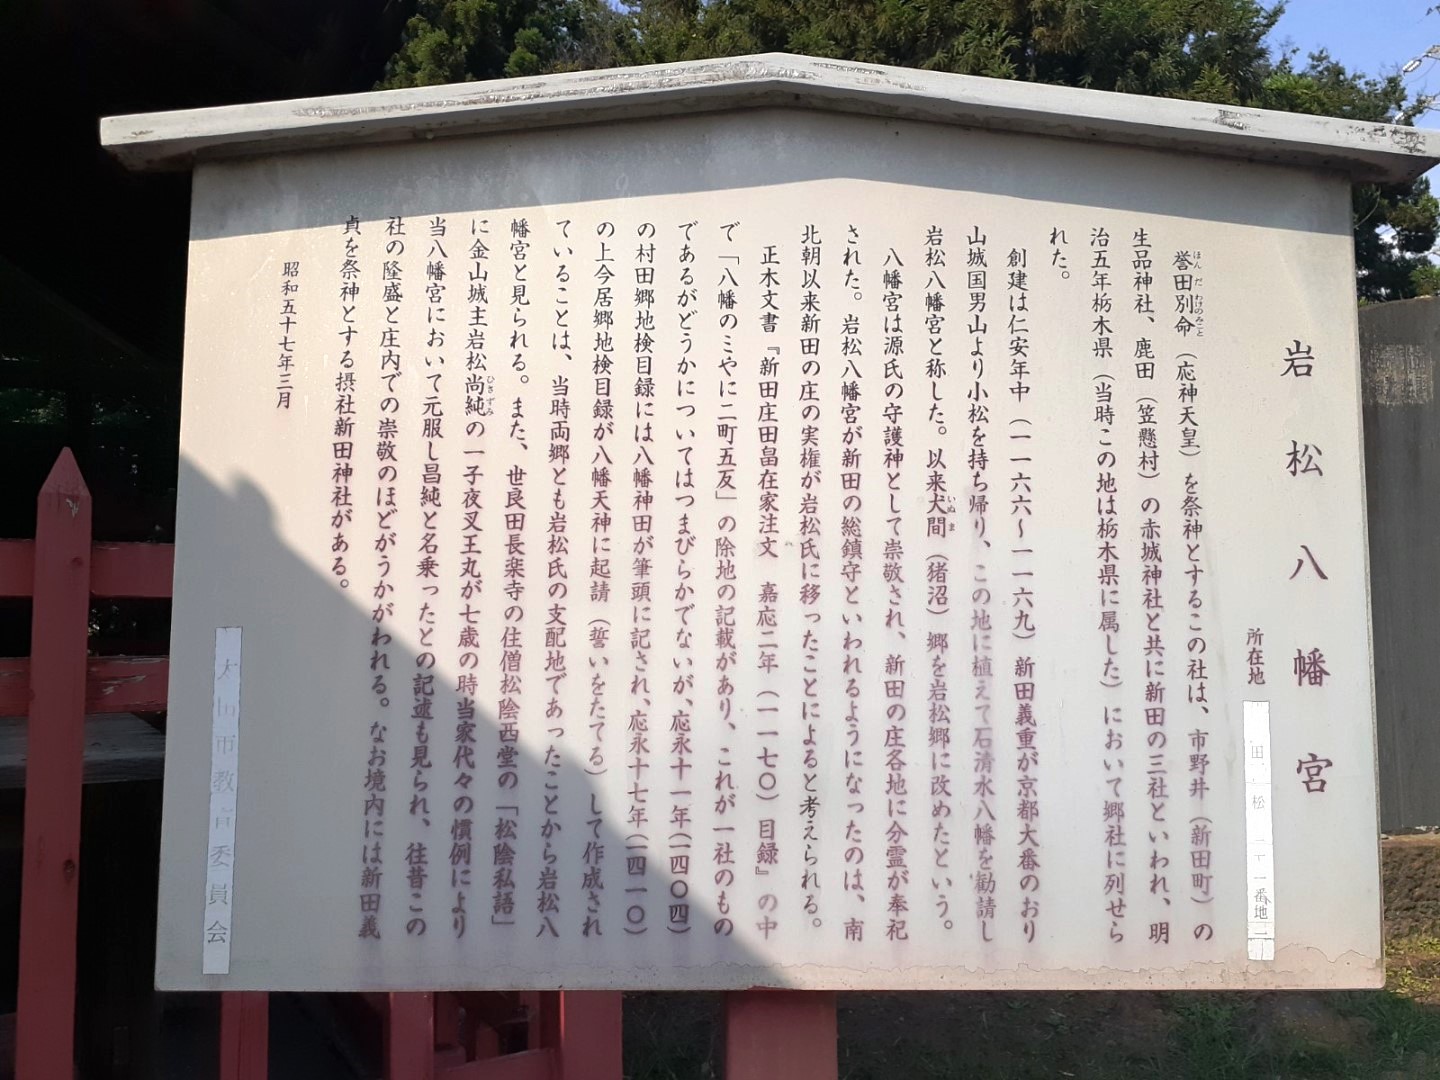 岩松八幡宮
所在地 田 松 二十一番地二
誉田別命（応神天皇）を祭神とするこの社は、市野井（新田町）の
ほんだわのみこと
生品神社、鹿田（笠懸村）の赤城神社と共に新田の三社といわれ、明
治五年栃木県（当時この地は栃木県に属した）において郷社に列せら
れた。
創建は仁安年中（一一六六〜一一六九）新田義重が京都大番のおり
山城国男山より小松を持ち帰り、この地に植えて石清水八幡を勧請し
岩松八幡宮と称した。以来犬間（猪沼）郷を岩松郷に改めたという。
いぬま
八幡宮は源氏の守護神として崇敬され、新田の庄各地に分霊が奉祀
された。岩松八幡宮が新田の総鎮守といわれるようになったのは、南
北朝以来新田の庄の実権が岩松氏に移ったことによると考えられる。
正木文書『新田庄田畠在家注文 嘉応二年（一一七〇）目録』の中
で「八幡のミやに二町五反」の除地の記載があり、これが一社のもの
であるがどうかについてはつまびらかでないが、応永十一年（一四〇四）
の村田郷地検目録には八幡神田が筆頭に記され、応永十七年（一四一〇）
の上今居郷地検目録が八幡天神に起請（誓いをたてる）して作成され
ていることは、当時両郷とも岩松氏の支配地であったことから岩松八
幡宮と見られる。また、世良田長楽寺の住僧松陰西堂の「松陰私語」
に金山城主岩松尚純の一子夜叉王丸が七歳の時当家代々の慣例により
ひさずみ
当八幡宮において元服し昌純と名乗ったとの記述も見られ、往昔この
社の隆盛と庄内での崇敬のほどがうかがわれる。なお境内には新田義
貞を祭神とする摂社新田神社がある。
昭和五十七年三月
太 市教育委員会